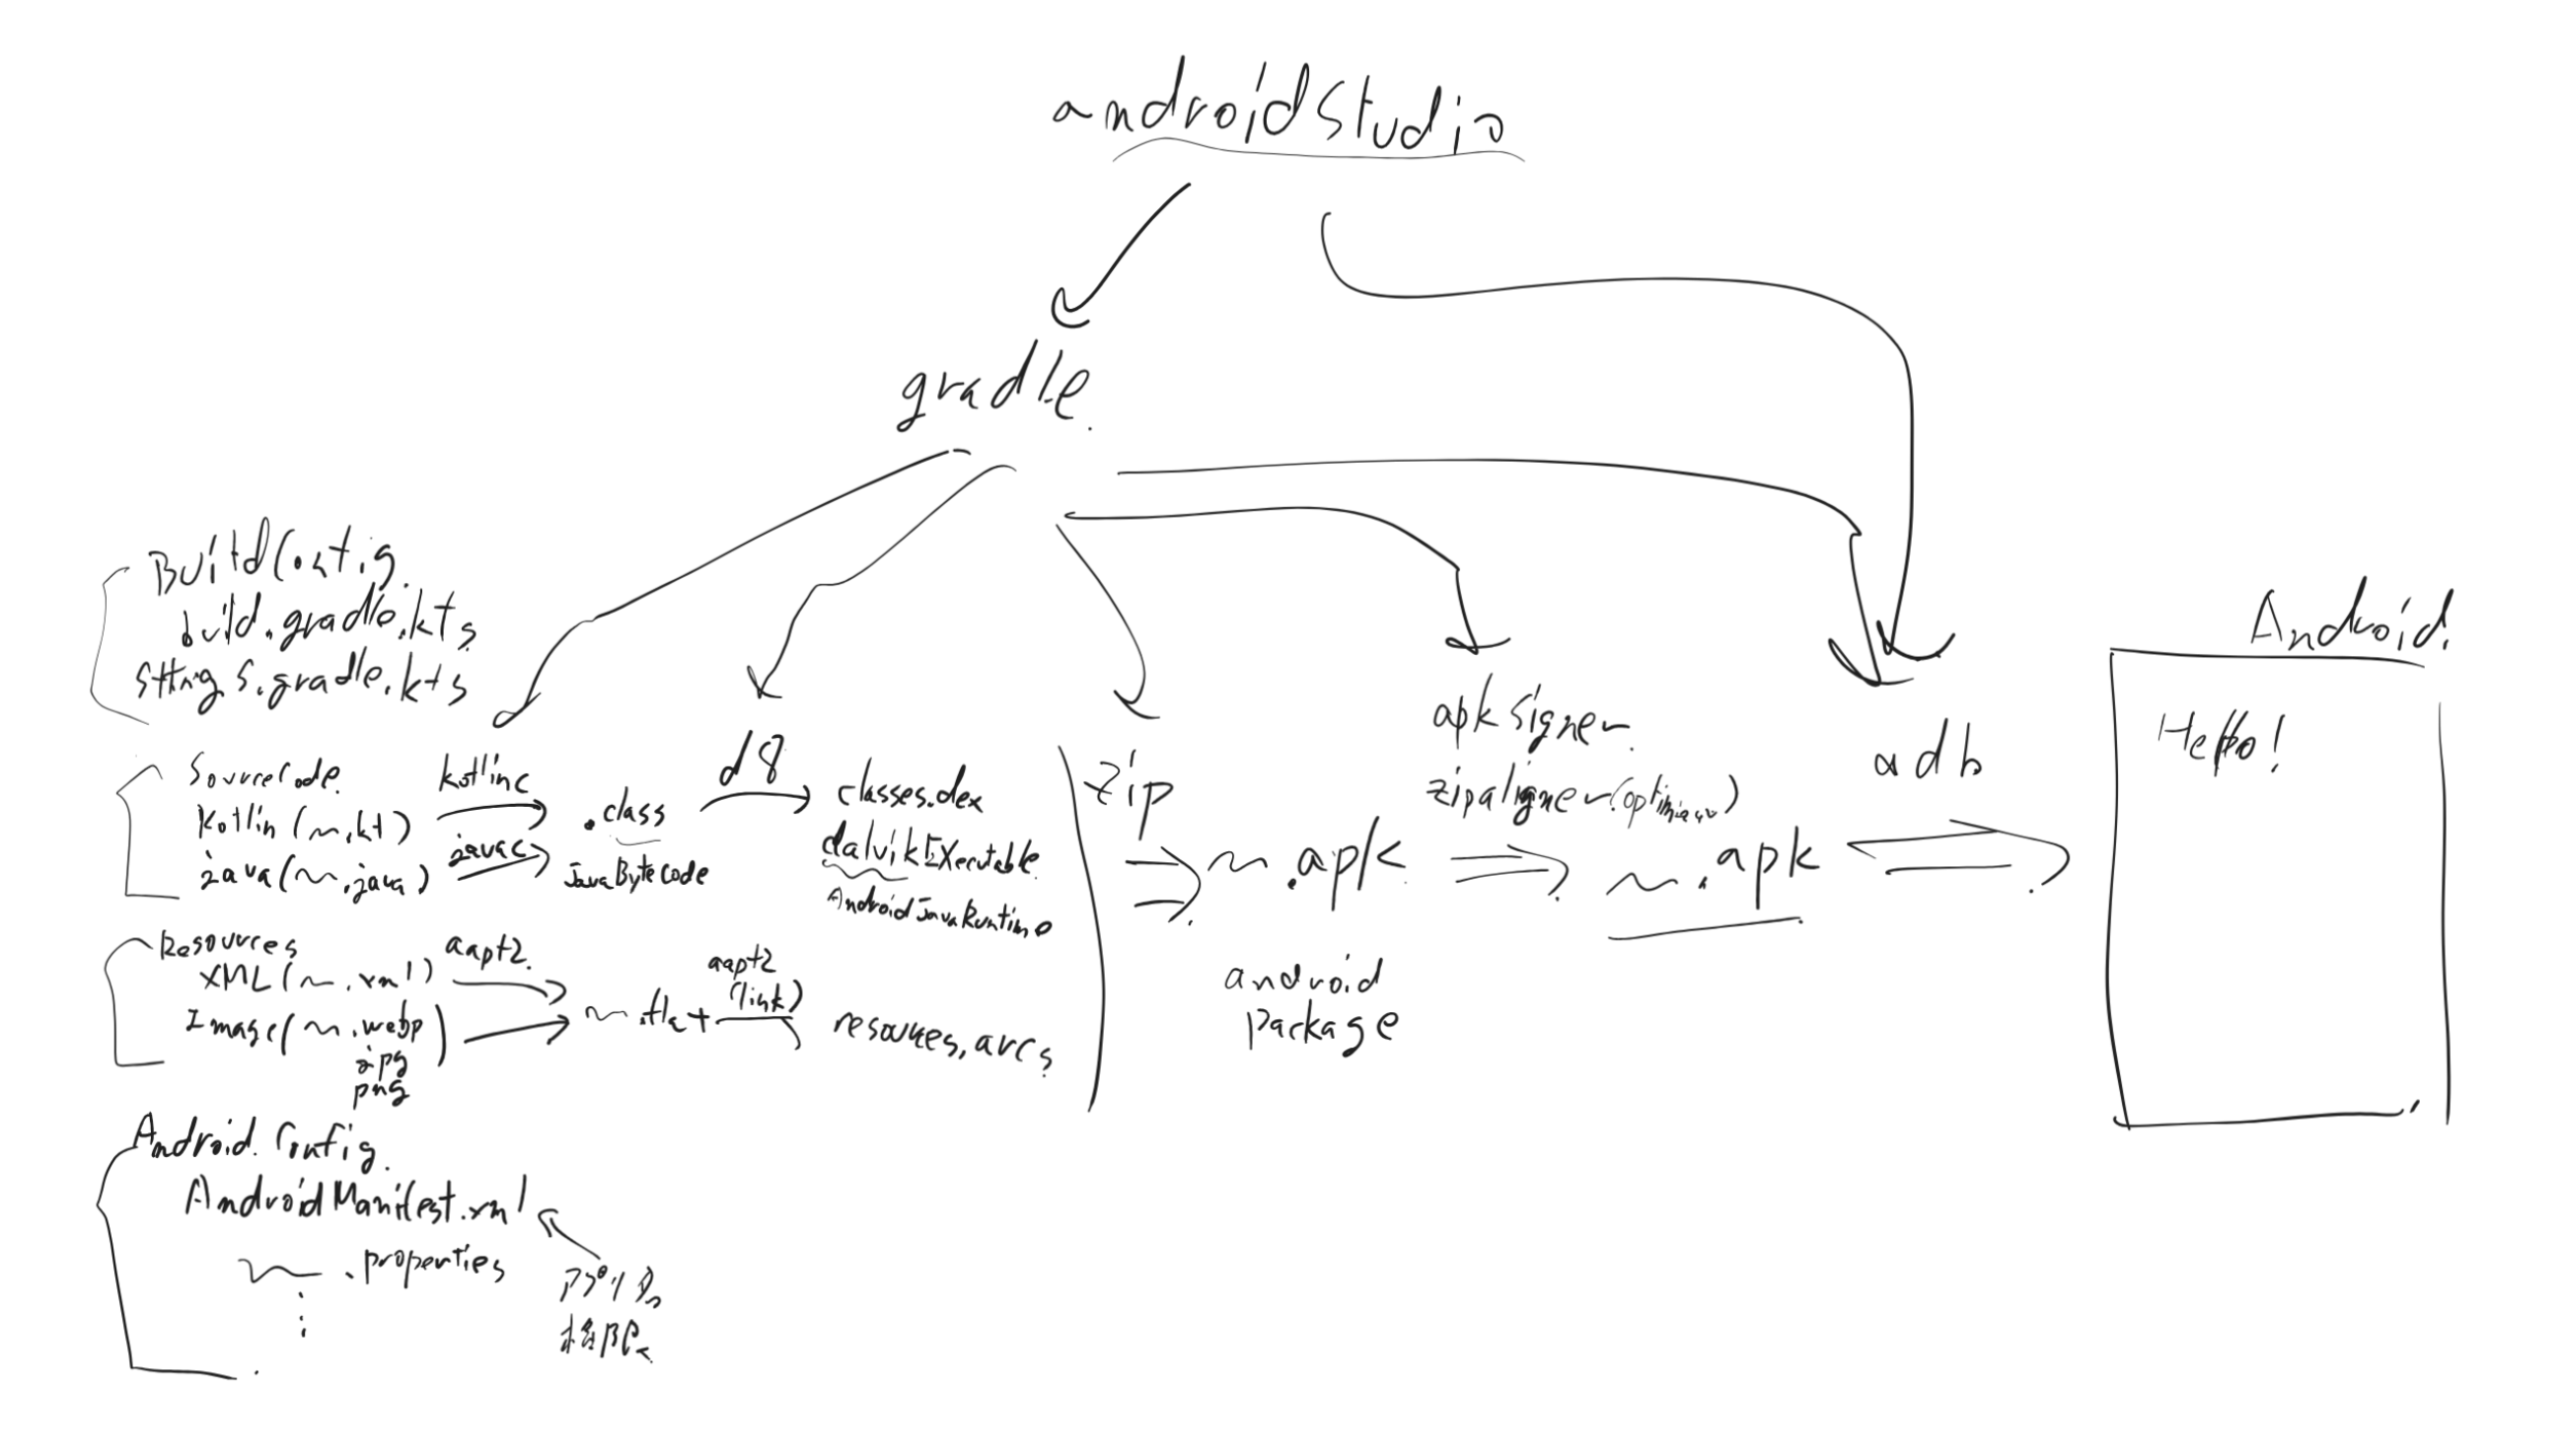 androidStudio
gradle.
BuildConfig.
build.gradle.kts
sttngs.gradle.kts
SourceCode
Kotlin (~.kt)
java (~.java)
kotlinc
javac
.class
JavaByteCode
d8
classes.dex
dalvikEXecutable
AndroidJavaRuntime
Resources
XML (~.xml)
Image (~.webp
jpg
png)
aapt2.
~.flat
aapt2
(link)
resources.arcs
Android Config.
AndroidManifest.xml
~.properties
アプリ名
zip
~.apk
android
package
apksigner
zipaligner
~.apk
adb
Android
Hello!